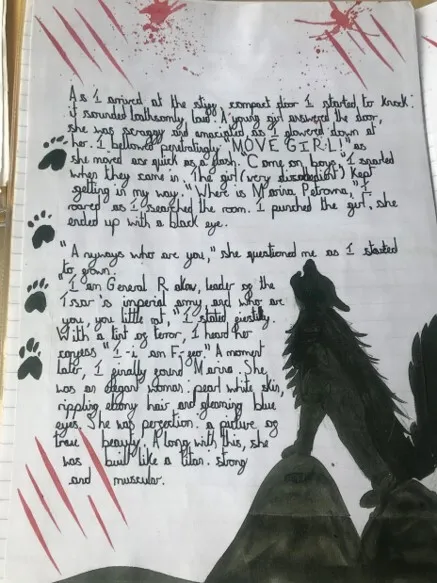 As I arrived at the stiff compact door I started to knock;
it sounded loathsomly loud. A young girl answered the door,
she was scraggy and emaciated, as I glowered down at
her. I bellowed penetratingly "MOVE GIRL!" as
she moved as quick as a flash. "Come on boys," I snarled
when they came in. The girl (very disobedient) kept
getting in my way. "Where is Marina Petrovna," I
roared as I searched the room. I punched the girl, she
ended up with a black eye.
"Anyways who are you," she questioned me as I started
to frown.
"I am General Rakov, leader of the
Tsar's imperial army, and who are
you, you little rat," I stated fiestily.
With a tint of terror, I heard her
confess "I-i am F-feo." A moment
later, I finally found Marina. She
was an elegant woman: pearl white skin,
rippling ebony hair and gleaming blue
eyes. She was perfection. a picture of
true beauty. Along with this, she
was built like a titan. strong
and muscular.